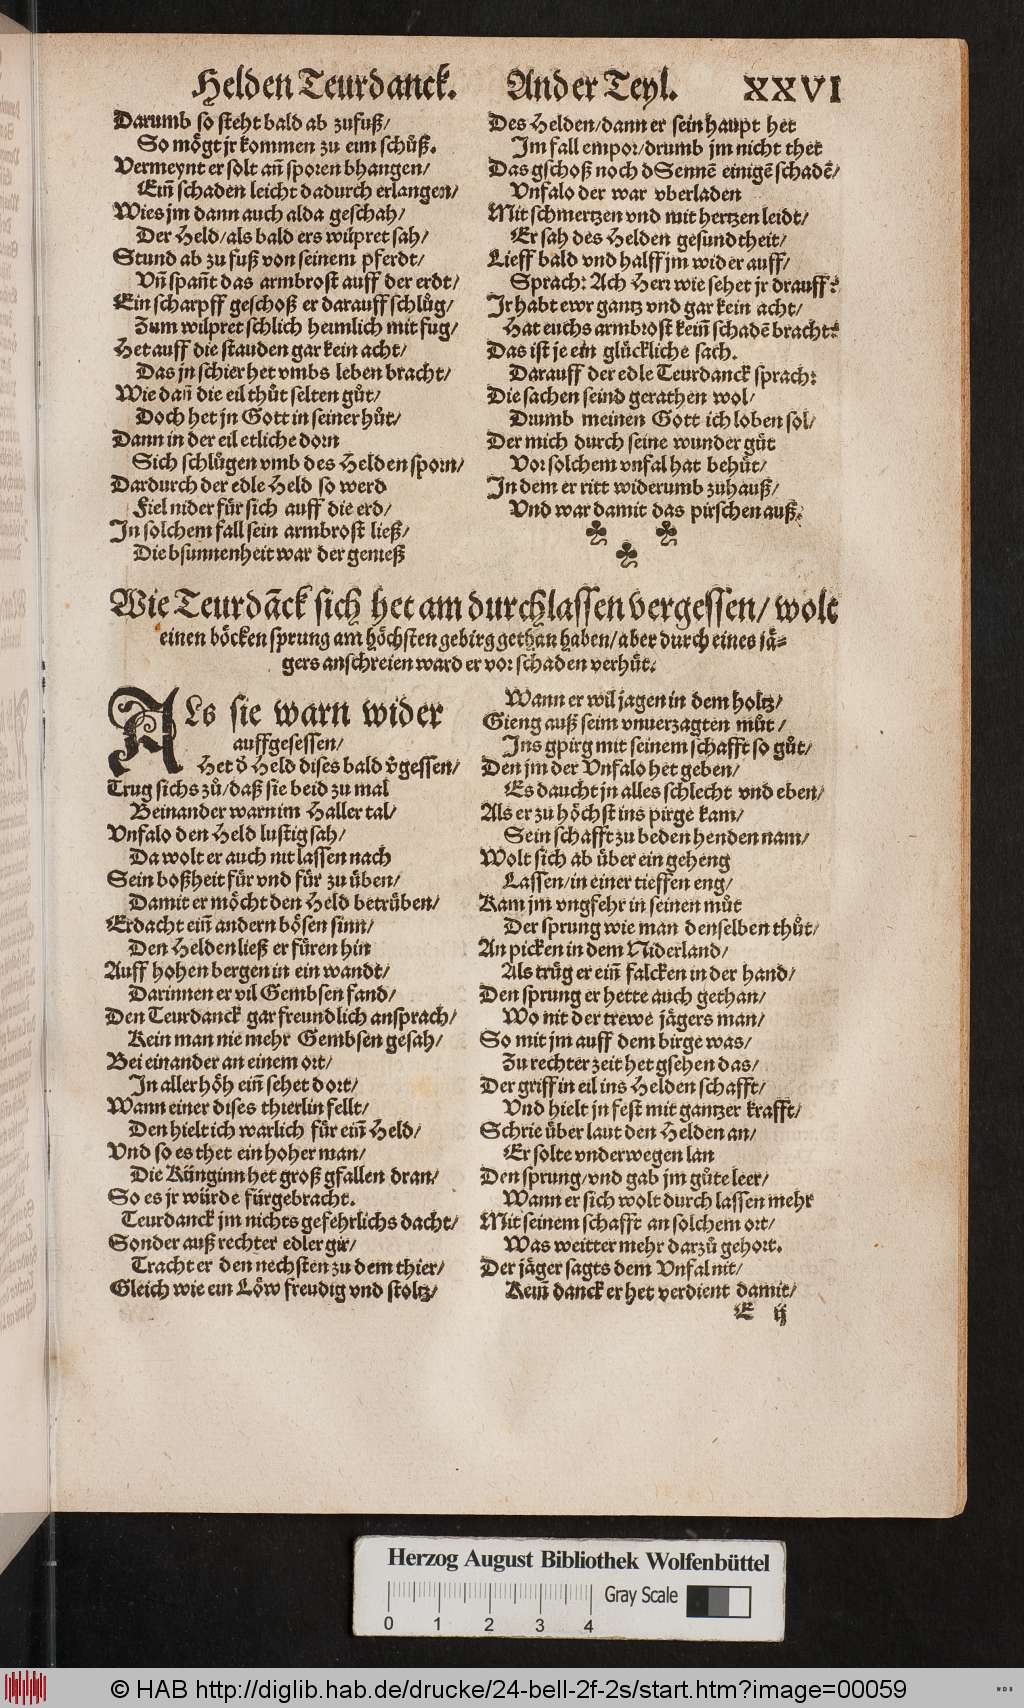 Helden Teurdanck. Ander Teyl. XXVI
Darumb so steht bald ab zufuß/
So mögt jr kommen zu eim schüß.
Vermeynt er solt an̄ sporen bhangen/
Ein̄ schaden leicht dadurch erlangen/
Wies jm dann auch alda geschah/
Der Held/als bald ers wilpret sah/
Stund ab zu fuß von seinem pferdt/
Vn̄ span̄t das armbrost auff der erdt/
Ein scharpff geschoß er darauff schlůg/
Zum wilpret schlich heimlich mit fug/
Het auff die stauden gar kein acht/
Das jn schier het vmbs leben bracht/
Wie dan̄ die eil thůt selten gůt/
Doch het jn Gott in seiner hůt/
Dann in der eil etliche dorn
Sich schlůgen vmb des Helden sporn/
Dardurch der edle Held so werd
Fiel nider für sich auff die erd/
In solchem fall sein armbrost ließ/
Die bsunnenheit war der genieß
Des Helden/dann er sein haupt het
Im fall empor/drumb jm nicht thet
Das gschoß noch dSennē einigē schadē/
Vnfalo der war vberladen
Mit schmertzen vnd mit hertzen leidt/
Er sah des Helden gesundtheit/
Lieff bald vnd halff jm wider auff/
Sprach: Ach Herr wie sehet jr drauff?
Ir habt ewr gantz vnd gar kein acht/
Hat euchs armbrost kein̄ schadē bracht?
Das ist je ein glückliche sach.
Darauff der edle Teurdanck sprach:
Die sachen seind gerathen wol/
Drumb meinen Gott ich loben sol/
Der mich durch seine wunder gůt
Vor solchem vnfal hat behůt/
In dem er ritt widerumb zuhauß/
Vnd war damit das pirschen auß.
Wie Teurdāck sich het am durchlassen vergessen/ wolt
einen böcken sprung am höchsten gebirg gethan haben/aber durch eines jä-
gers anschreien ward er vor schaden verhůt.
ALs sie warn wider
auffgesessen/
Het d̄ Held dises bald v̄gessen/
Trug sichs zů/daß sie beid zu mal
Beinander warn im Haller tal/
Vnfalo den Held lustig sah/
Da wolt er auch nit lassen nach
Sein boßheit für vnd für zu üben/
Damit er möcht den Held betrüben/
Erdacht ein̄ andern bösen sinn/
Den Helden ließ er füren hin
Auff hohen bergen in ein wandt/
Darinnen er vil Gembsen fand/
Den Teurdanck gar freundlich ansprach/
Kein man nie mehr Gembsen gesah/
Bei einander an einem ort/
In aller höh ein̄ sehet dort/
Wann einer dises thierlin fellt/
Den hielt ich warlich für ein̄ Held/
Vnd so es thet ein hoher man/
Die Künginn het groß gfallen dran/
So es jr würde fürgebracht.
Teurdanck jm nichts gefehrlichs dacht/
Sonder auß rechter edler gir/
Tracht er den nechsten zu dem thier/
Gleich wie ein Löw freudig vnd stoltz/
Wann er wil jagen in dem holtz/
Gieng auß seim vnuerzagten můt/
Ins gpirg mit seinem schafft so gůt/
Den jm der Vnfalo het geben/
Es daucht jn alles schlecht vnd eben/
Als er zu höchst ins pirge kam/
Sein schafft zu beden henden nam/
Wolt sich ab über ein geheng
Lassen/in einer tieffen eng/
Kam jm vngfehr in seinen můt
Der sprung wie man denselben thůt/
An picken in dem Niderland/
Als trüg er ein̄ falcken in der hand/
Den sprung er hette auch gethan/
Wo nit der trewe jägers man/
So mit jm auff dem birge was/
Zu rechter zeit het gsehen das/
Der griff in eil ins Helden schafft/
Vnd hielt jn fest mit gantzer krafft/
Schrie über laut den Helden an/
Er solte vnderwegen lan
Den sprung/vnd gab jm gůte leer/
Wann er sich wolt durch lassen mehr
Mit seinem schafft an solchem ort/
Was weitter mehr darzů gehort.
Der jäger sagts dem Vnfal nit/
Kein̄ danck er het verdient damit/
E ij
Herzog August Bibliothek Wolfenbüttel
Gray Scale
0 1 2 3 4
© HAB http://diglib.hab.de/drucke/24-bell-2f-2s/start.htm?image=00059